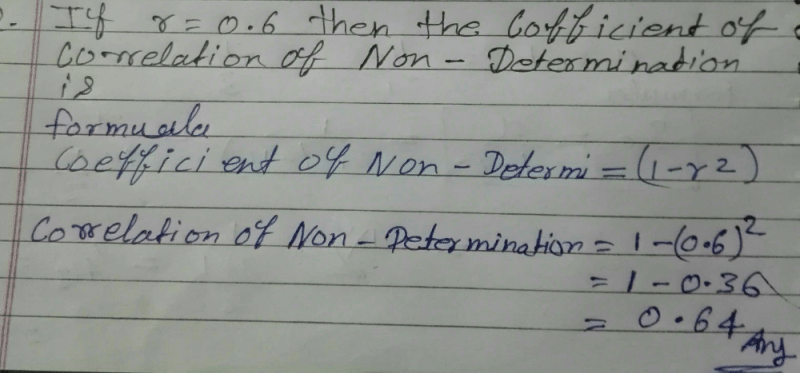 2. If r = 0.6 then the Cofficient of
Correlation of Non - Determination
is
formuala
Coefficient of Non - Determi = (1-r2)
Correlation of Non - Determination = 1-(0.6)²
= 1 - 0.36
= 0.64 Ans